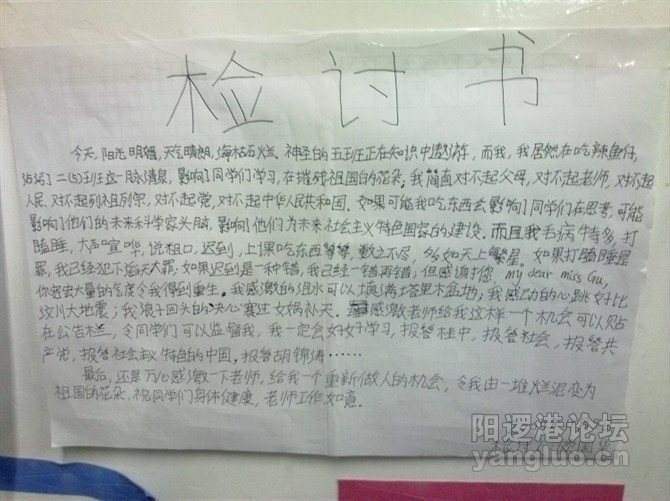 检讨书
今天,阳光明媚,天气晴朗,海枯石烂。神圣的五班正在知识中遨游,而我,我居然在吃辣鱼仔,
沾污了二(5)班这一脉清泉,影响了同学们学习,在摧残祖国的花朵,我简直对不起父母,对不起老师,对不起
人民,对不起列祖列宗,对不起党,对不起中华人民共和国,如果可能我吃东西会影响了同学们在思考,可能
影响了他们的未来科学家头脑,影响他们为未来社会主义特色国家的建设。而且我毛病特多,打
瞌睡,大声喧哗,说粗口,迟到,上课吃东西等等,数之不尽,多如天上繁星。如果打瞌睡是
罪,我已经犯下滔天大罪,如果迟到是一种错,我已经一错再错;但感谢您,my dear miss Gu,
大量的气度令我得到重生。我感激的泪水可以填满塔里木盆地;我感动的心跳好比
汶川大地震;我浪子回头的决心赛过女娲补天。感激老师给我这样一个机会可以贴
在公告栏,令同学们可以监督我,我一定会好好学习,报答桂中,报答社会,报答共
产党,报答社会主义特色的中国,报答胡锦涛……
最后,还是万心感激一下老师,给我一个重新做人的机会,令我由一堆烂泥变为
祖国的花朵,祝同学们身体健康,老师工作如意.
阳逻港论坛
yangluo.cn